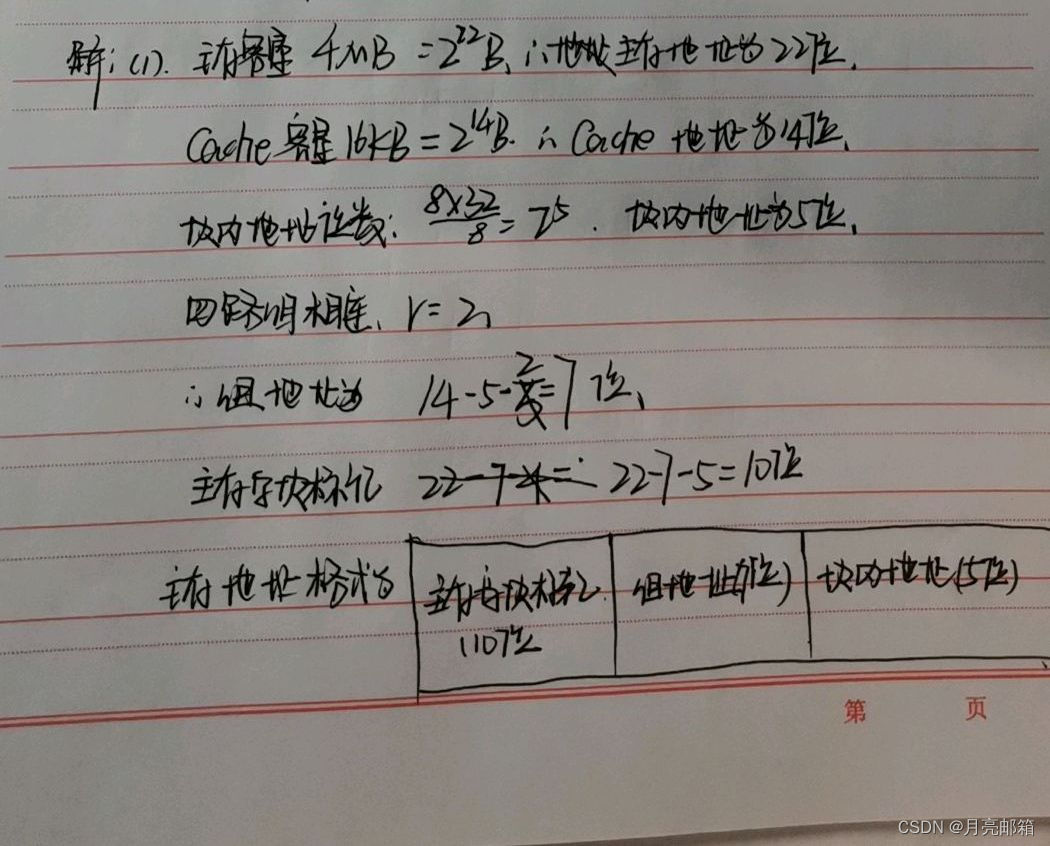 解:(1). 主存容量 4MB =2²²B, ∴地址主存地址为22位.
Cache容量16KB=2¹⁴B. ∴ Cache 地址为14位.
块内地址位数: 8×32/8=2⁵. 块内地址为5位.
四路组相连, r=2,
∴组地址为 14-5-2=7位.
主存字块标记 22-7-5=10位
主存地址格式为 主存字块标记 组地址(7位) 块内地址(5位)
(10位
第 页
CSDN @月亮邮箱